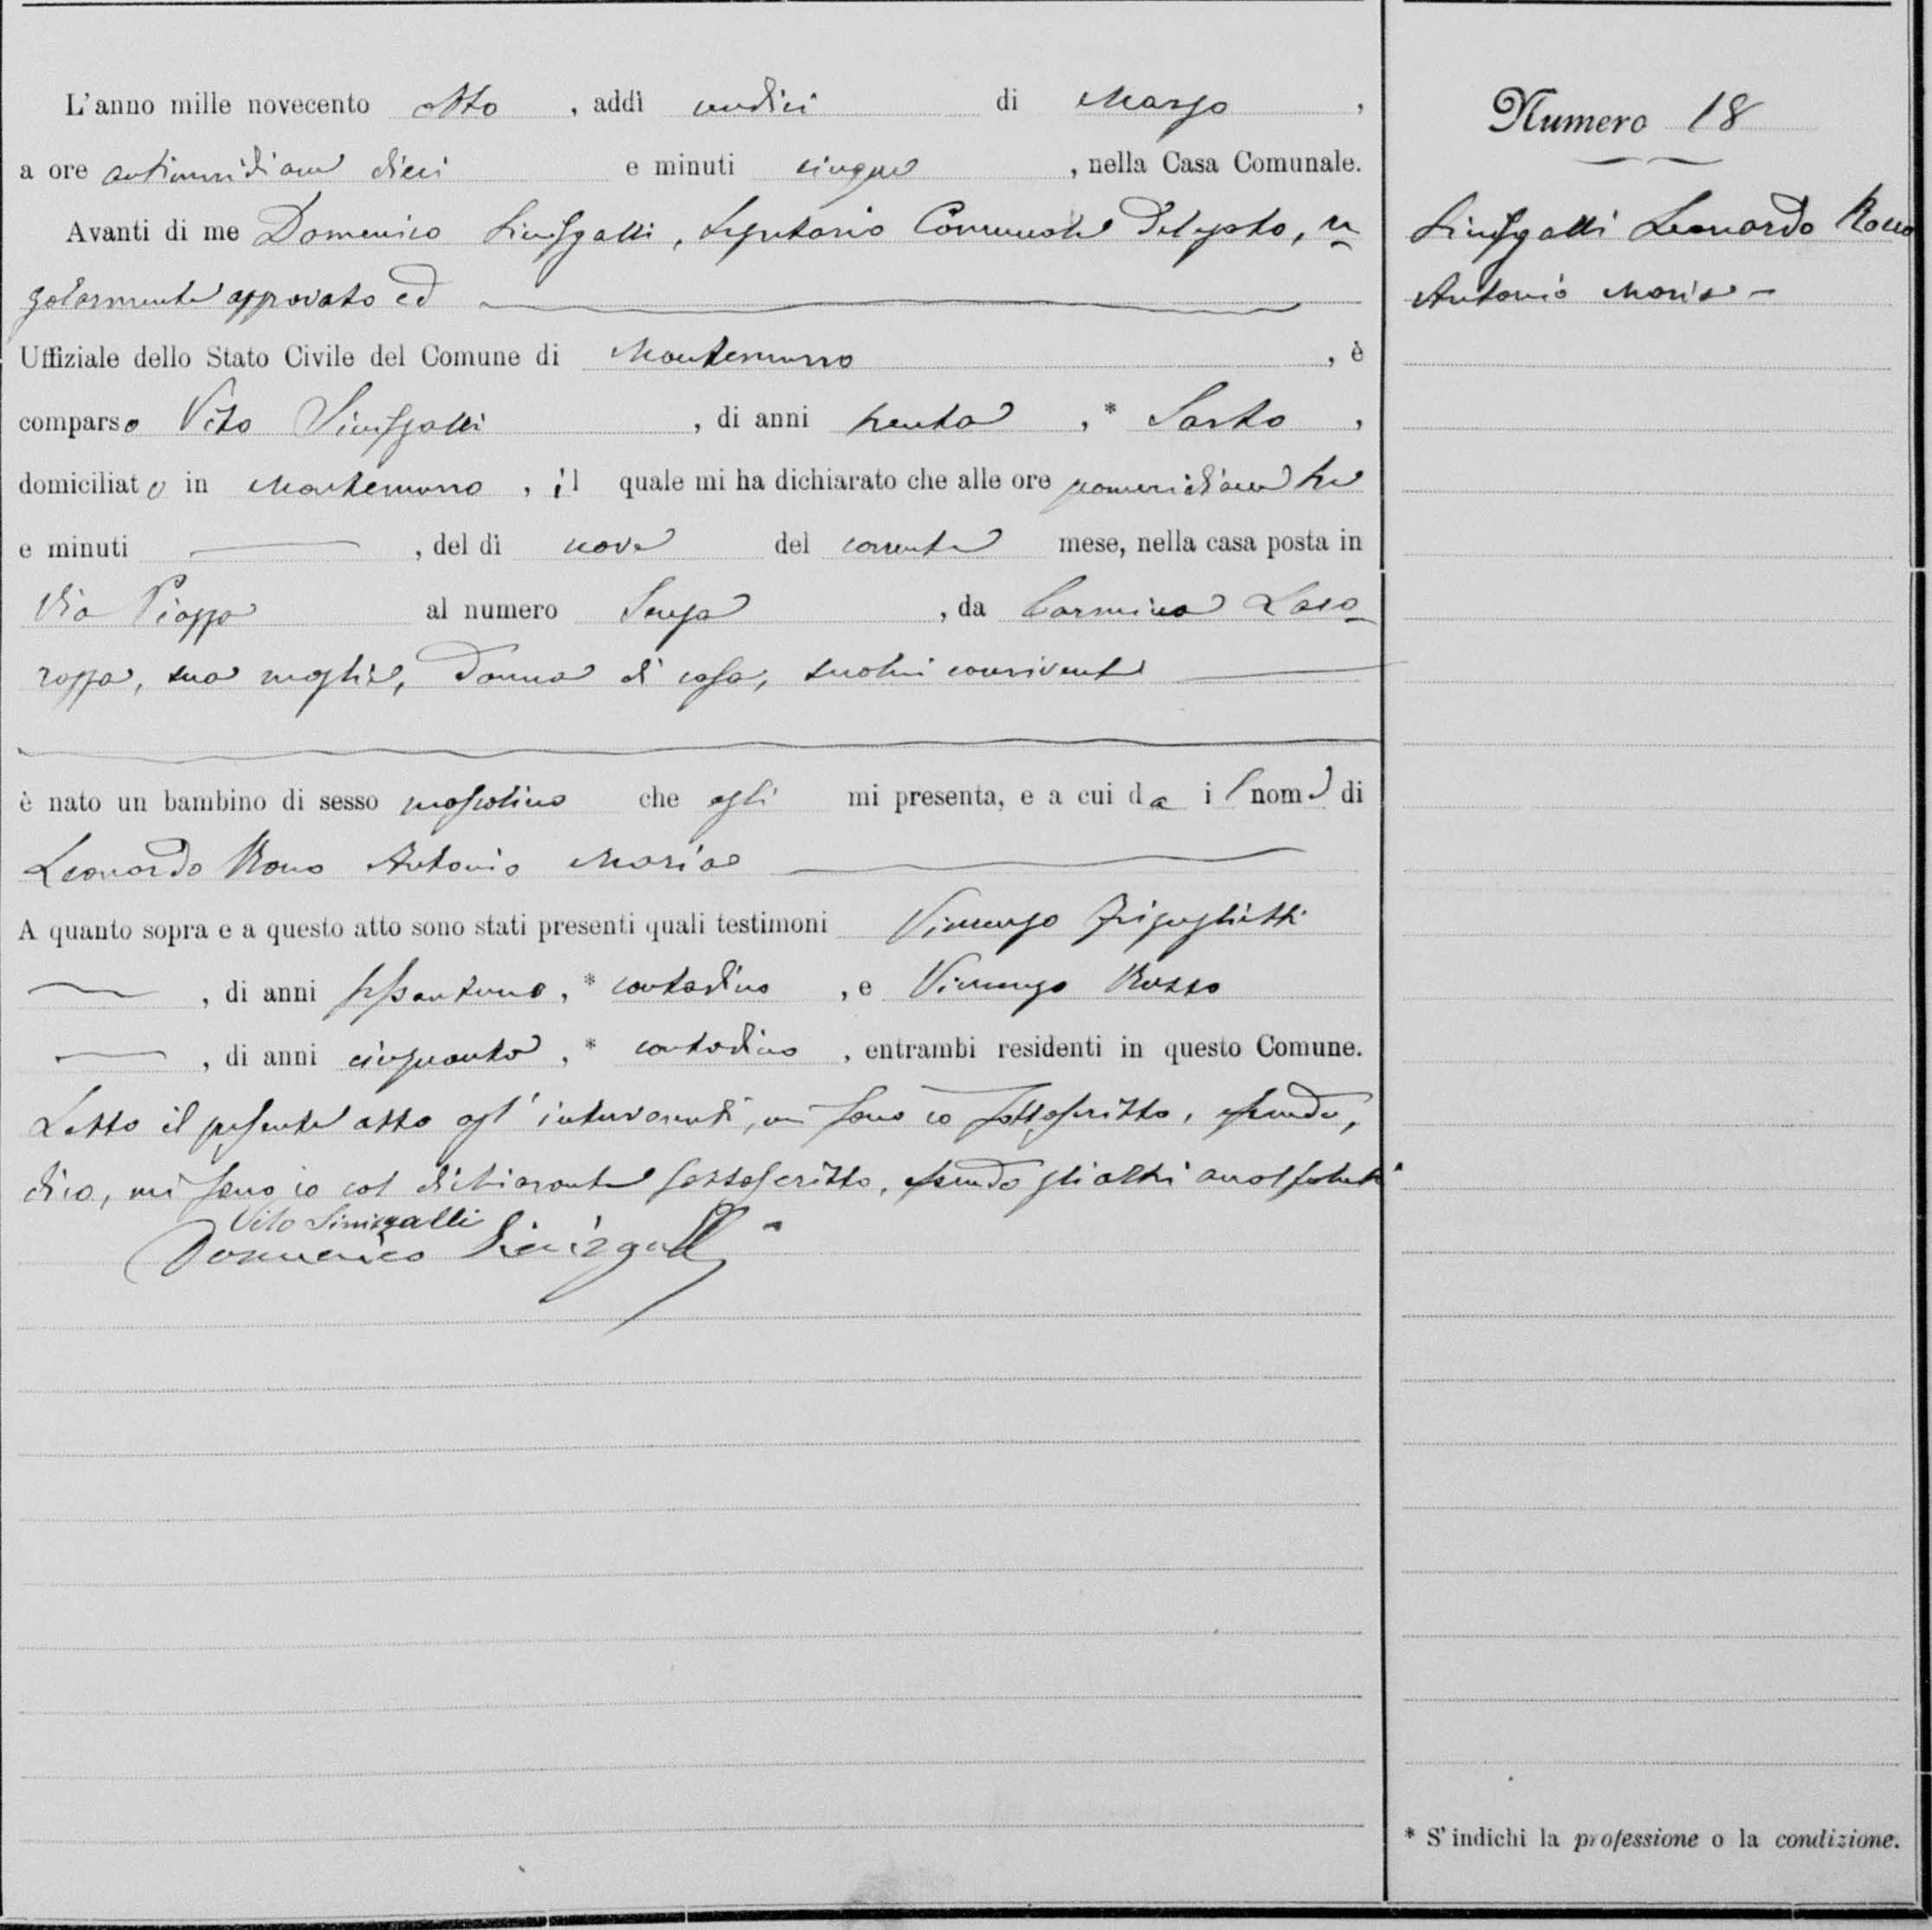 L'anno mille novecento otto, addì undici di Marzo,
a ore antimeridiane dieci e minuti cinque, nella Casa Comunale.
Avanti di me Domenico Sinisgalli, Segretario Comunale Delegato, re
golarmente approvato ed
Uffiziale dello Stato Civile del Comune di Montemurro, è
comparso Vito Sinisgalli, di anni trenta, * Sarto,
domiciliato in Montemurro, il quale mi ha dichiarato che alle ore pomeridiane tre
e minuti —, del dì nove del corrente mese, nella casa posta in
Via Piazza al numero Senza, da Carmina Laco-
razza, sua moglie, Donna di casa, seco lui convivente
è nato un bambino di sesso mascolino che egli mi presenta, e a cui da il nome di
Leonardo Rocco Antonio Maria
A quanto sopra e a questo atto sono stati presenti quali testimoni Vincenzo
—, di anni sessantuno, * contadino, e Vincenzo Russo
—, di anni cinquanta, * contadino, entrambi residenti in questo Comune.
Letto il presente atto agl'intervenuti, mi sono io sottoscritto, essendo,
dico, mi sono io col dichiarante sottoscritto, essendo gli altri analfabeti
Vito Sinisgalli
Domenico Sinisgalli
Numero 18
Sinisgalli Leonardo Rocco
Antonio Maria -
* S'indichi la professione o la condizione.